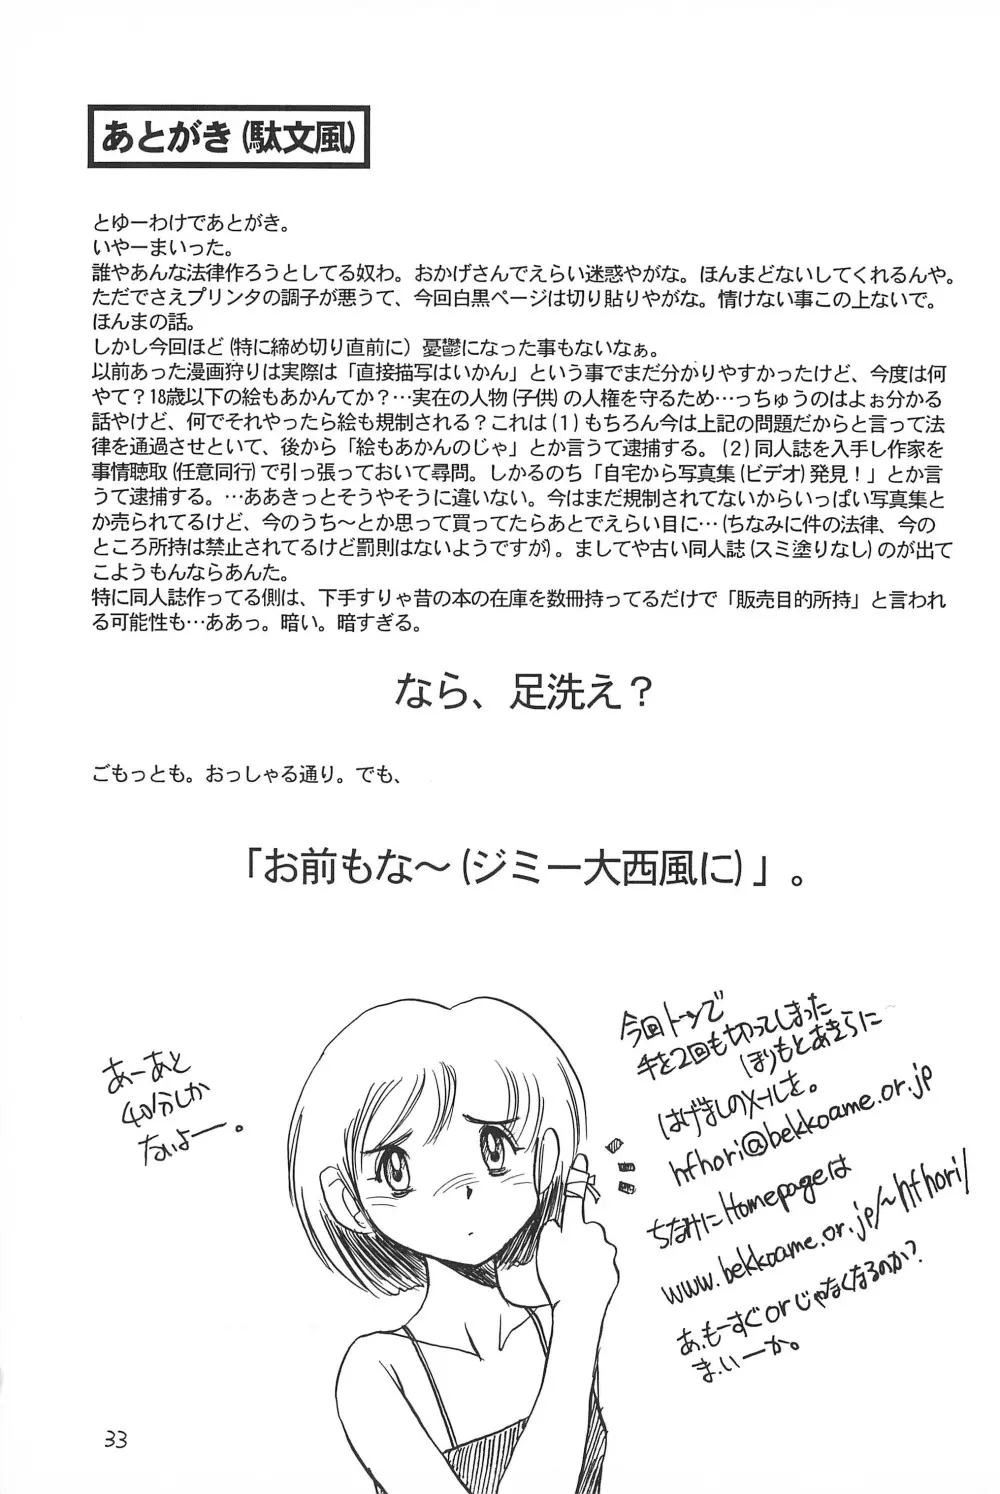 あとがき(駄文風)
とゆーわけであとがき。
いやーまいった。
誰やあんな法律作ろうとしてる奴わ。おかげさんでえらい迷惑やがな。ほんまどないしてくれるんや。
ただでさえプリンタの調子が悪うて、今回白黒ページは切り貼りやがな。情けない事この上ないで。
ほんまの話。
しかし今回ほど(特に締め切り直前に)憂鬱になった事もないなぁ。
以前あった漫画狩りは実際は「直接描写はいかん」という事でまだ分かりやすかったけど、今度は何
やて？18歳以下の絵もあかんてか？…実在の人物(子供)の人権を守るため…っちゅうのはよぉ分かる
話やけど、何でそれやったら絵も規制される？これは(1)もちろん今は上記の問題だからと言って法
律を通過させといて、後から「絵もあかんのじゃ」とか言うて逮捕する。(2)同人誌を入手し作家を
事情聴取(任意同行)で引っ張っておいて尋問。しかるのち「自宅から写真集(ビデオ)発見！」とか言
うて逮捕する。…ああきっとそうやそうに違いない。今はまだ規制されてないからいっぱい写真集と
か売られてるけど、今のうち～とか思って買ってたらあとでえらい目に…(ちなみに件の法律、今の
ところ所持は禁止されてるけど罰則はないようですが)。ましてや古い同人誌(スミ塗りなし)のが出て
こようもんならあんた。
特に同人誌作ってる側は、下手すりゃ昔の本の在庫を数冊持ってるだけで「販売目的所持」と言われ
る可能性も…ああっ。暗い。暗すぎる。
なら、足洗え？
ごもっとも。おっしゃる通り。でも、
「お前もな～(ジミー大西風に)」。
あーあと
40分しか
ないよー。
今回トーンで
手を2回も切ってしまった
ほりもとあきらに
はげましのメールを。
hfhori@bekkoame.or.jp
ちなみにHomepageは
www.bekkoame.or.jp/~hfhori/
あ、もーすぐorじゃなくなるのか？
ま、いーか。
33